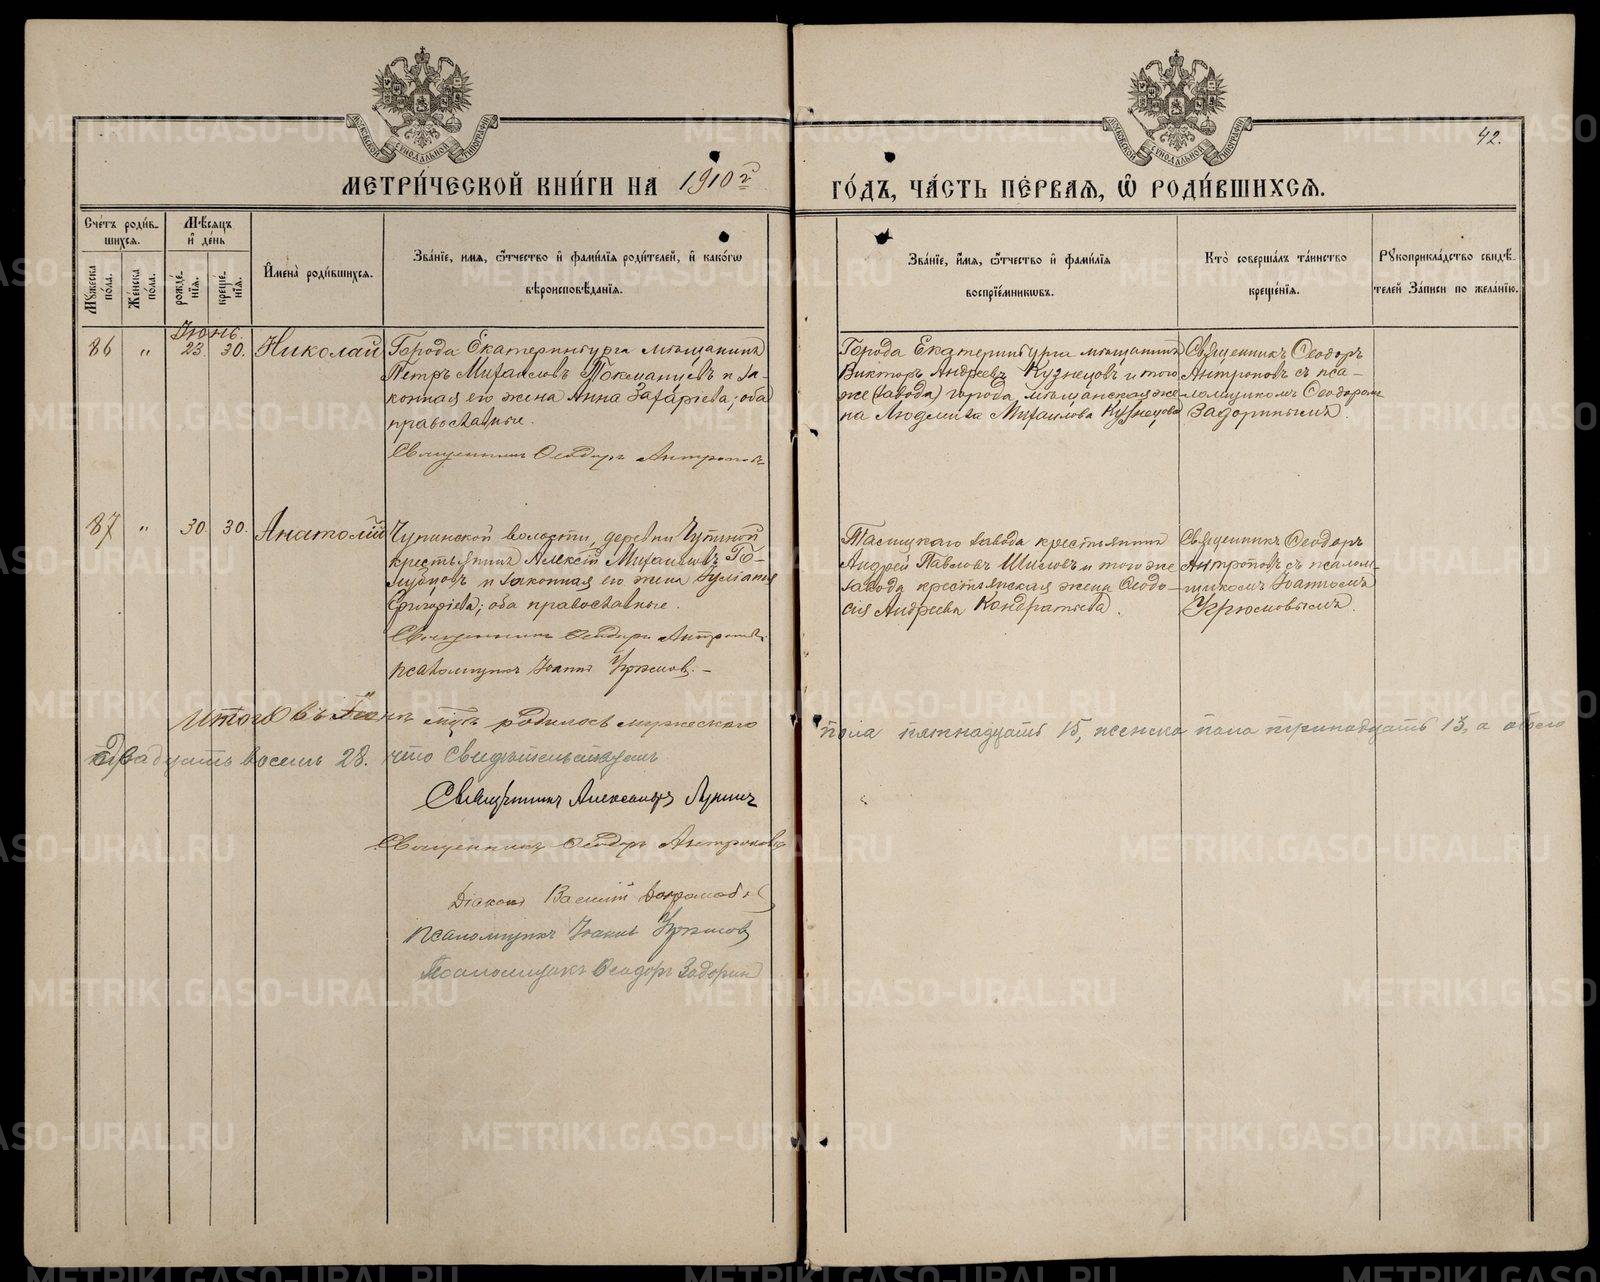 42.
МЕТРИ́ЧЕСКОЙ КНИ́ГИ НА 1910 г.
ГО́ДЪ, ЧА́СТЬ ПЕ́РВАЯ, Ѽ РОДИ́ВШИХСЯ.
Сче́тъ роди́вшихся.
Мѣ́сяцъ и҆ де́нь
Мꙋ́жеска по́ла.
Же́нска по́ла.
рожде́нїѧ.
креще́нїѧ.
И҆мена̀ роди́вшихся.
Зва́нїе, и҆́мѧ, ѻ҆́тчество и҆ фами́лїѧ роди́телей, и҆ како́гѡ
вѣроисповѣ́данїѧ.
Зва́нїе, и҆́мѧ, ѻ҆́тчество и҆ фами́лїѧ
воспрїе́мникѡвъ.
Кто̀ соверша́лъ та́инство
креще́нїѧ.
Рꙋкоприкла́дство свидѣ́телей за́писи по жела́нїю.
Іюнь.
86 " 23. 30. Николай
Города Екатеринбурга мѣщанинъ
Петръ Михаиловъ Токманцевъ и за-
конная его жена Анна Захаріева; оба
православные.
Священникъ Ѳеодоръ Антроповъ
Города Екатеринбурга мѣщанинъ
Викторъ Андреевъ Кузнецовъ и того
же (завода) города мѣщанская же
на Людмила Михаилова Кузнецова
Священникъ Ѳеодоръ
Антроповъ съ пса-
ломщикомъ Ѳеодоромъ
Задоринымъ.
87 " 30. 30. Анатолій
Чупинской волости, деревни Чупиной
крестьянинъ Алексій Михаиловъ Го-
лубцовъ и законная его жена Іуліанія
Григоріева; оба православные.
Священникъ Ѳеодоръ Антроповъ.
псаломщикъ Іоаннъ Угрюмовъ.
завода крестьянинъ
Андрей Павловъ Шиловъ и того же
завода крестьянская жена Ѳеодо-
сія Андреева Кондратьева.
Священникъ Ѳеодоръ
Антроповъ съ псалом-
щикомъ Іоанномъ
Угрюмовымъ.
Итого въ Іюнѣ мцѣ родилось мужескаго
пола пятнадцать 15, женска пола тринадцать 13, а обоего
двадцать восемь 28. что свидѣтельствуемъ
Священникъ Александръ Лукинъ
Священникъ Ѳеодоръ Антроповъ
Діаконъ Василій
Псаломщикъ Іоаннъ Угрюмовъ
Псаломщикъ Ѳеодоръ Задоринъ
METRIKI.GASO-URAL.RU